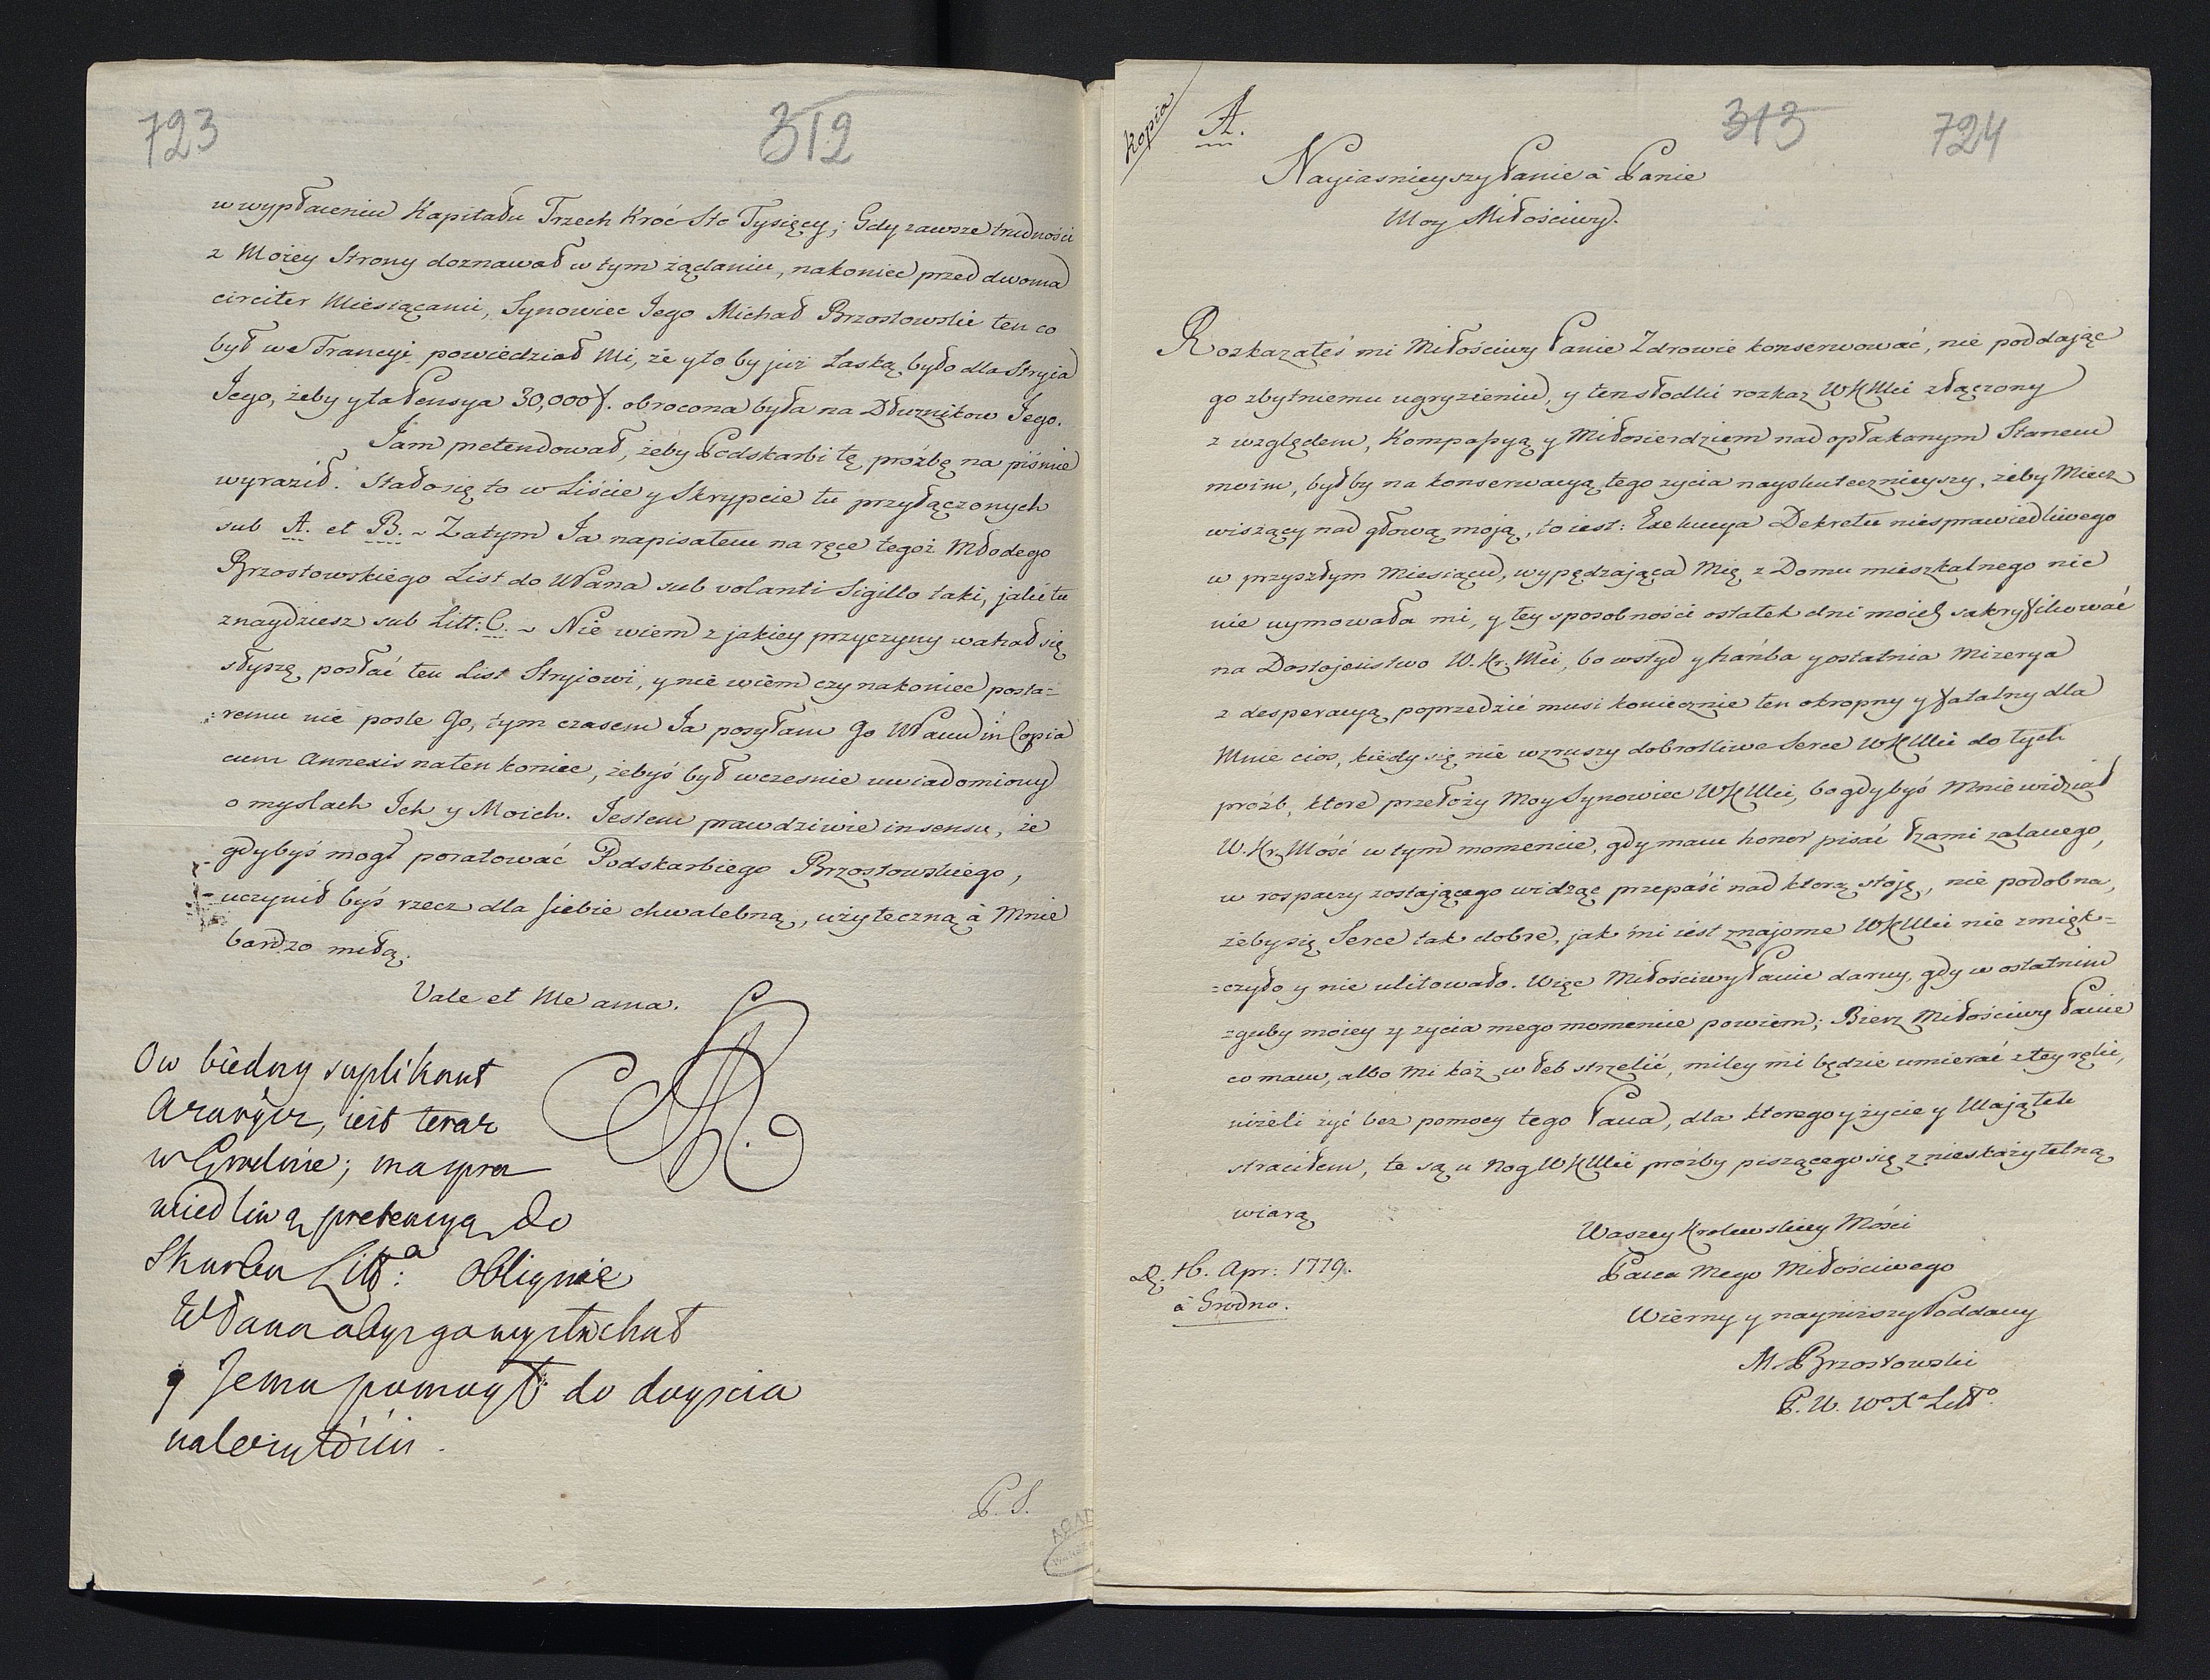 723
312
w wypłaceniu Kapitału Trzech Kroć Sto Tysięcy; Gdy zawsze trudności
z Moiey Strony doznawał w tym żądaniu, nakoniec przed dwoma
circiter Miesiącami, Synowiec Jego Michał Brzostowski ten co
był we Francyi powiedział Mi, że y to by już Łaską było dla Stryia
Jego, żeby y ta Pensya 30,000 f. obrocona była na Dłużnikow Jego.
Jam pretendował, żeby Podskarbi tę proźbę na piśmie
wyraził. Stało się to w Liście y Skrypcie tu przyłączonych
sub A. et B. ~ Zatym Ja napisałem na ręce tegoż Młodego
Brzostowskiego List do WPana sub volanti Sigillo taki, jaki tu
znaydziesz sub Litt: C. ~ Nie wiem z jakiey przyczyny wahał się
słyszę posłać ten List Stryiowi, y nie wiem czy nakoniec posta=
remu nie posle Go, tym czasem Ja posyłam Go WPanu in Copia
cum Annexis na ten koniec, żebyś był wczesnie uwiadomiony
o myslach Ich y Moich. Jestem prawdziwie in sensu, że
gdybyś mogł poratować Podskarbiego Brzostowskiego,
uczynił byś rzecz dla siebie chwalebną, użyteczną à Mnie
bardzo miłą.
Vale et Me ama.
SAR.
Ow biedny suplikant
iest teraz
w Grodnie; ma spra
wiedliwą pretensyą do
Skarbu Litt: a obliguię
WPana abyś go wysłuchał
y Jemu pomogł do doyscia
należytości.
P.S.
kopia
A.
313
724
Nayiasnieyszy Panie à Panie
Moy Miłościwy.
Rozkazałeś mi Miłościwy Panie Zdrowie konserwować, nie poddając
go zbytniemu ugryzieniu, y ten słodki rozkaz WKMci złączony
z względem, Kompassyą y Miłosierdziem nad opłakanym Stanem
moim, byłby na konserwacyą tego zycia nayskutecznieyszy, żeby Miecz
wiszący nad głową moją, to iest: Exekucya Dekretu niesprawiedliwego
w przyszłym Miesiącu, wypędzająca Mię z Domu mieszkalnego nic
nie uymowała mi, y tey sposobności ostatek dni moich sakryfikować
na Dostojeństwo W. Kr. Mci, bo wstyd y hańba y ostatnia Mizerya
z desperacyą poprzedzić musi koniecznie ten okropny y fatalny dla
Mnie cios, kiedy się nie wzruszy dobrotliwe Serce WKMci do tych
proźb, ktore przełoży Moy Synowiec WKMci, bo gdybyś Mnie widział
W. Kr. Mość w tym momencie, gdy mam honor pisać łzami zalanego,
w rospaczy zostającego widząc przepaść nad ktorą stoję, nie podobna,
żeby się Serce tak dobre, jak mi iest znajome WKMci nie zmięk=
=czyło y nie ulitowało. Więc Miłościwy Panie daruy, gdy w ostatnim
zguby moiey y zycia mego momencie powiem; Bierz Miłościwy Panie
co mam, albo Mi każ w łeb strzelić, miley mi będzie umierać z tey ręki,
niżeli żyć bez pomocy tego Pana, dla ktorego y życie y Majątek
straciłem, te są u Nog WKMci proźby piszącego się z nieskazytelną
wiarą
Waszey Krolewskiey Mości
Pana Mego Miłościwego
Wierny y nayniższy Poddany
M. Brzostowski
P. W. Wo Xa Litto
D. 16. Apr: 1779.
à Grodno.